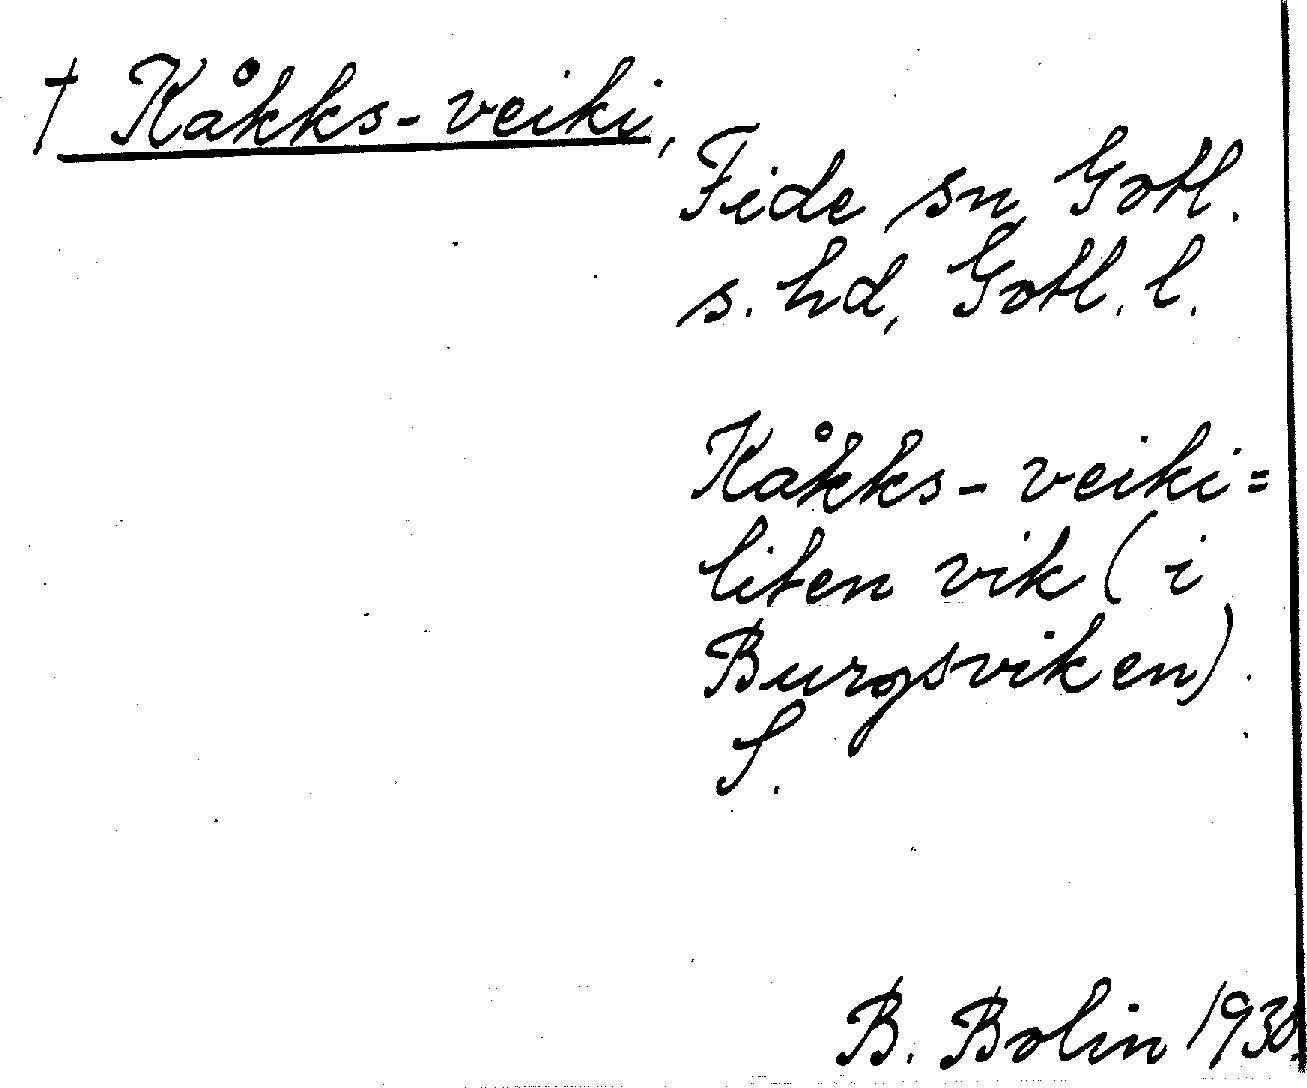 † Kåkks-veiki,
Fide sn, Gotl.
s. hd, Gotl. l.
Kåkks-veiki =
liten vik (i
Burgsviken).
S.
B. Bolin